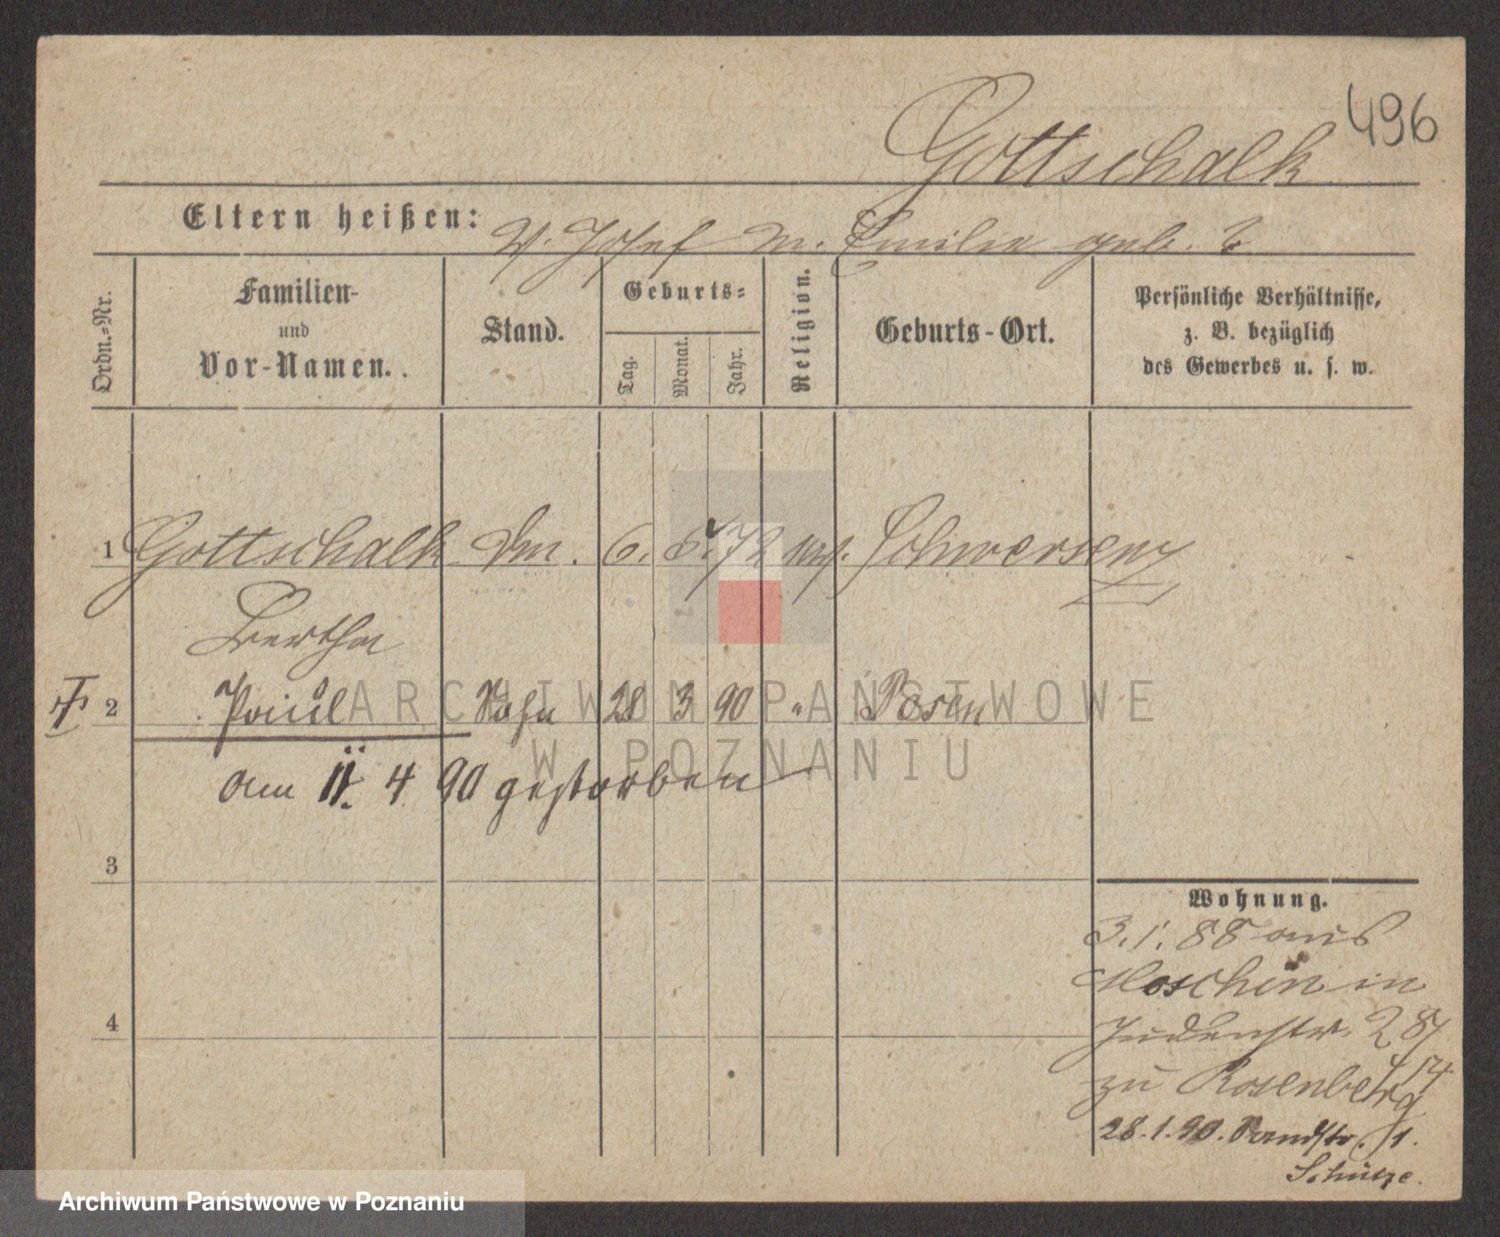 496
Gottschalk
Eltern heißen: V. Josef M. Emilie geb. ?
Ordn.-Nr.
Familien-
und
Vor-Namen.
Stand.
Geburts-
Tag.
Monat.
Jahr.
Religion.
Geburts-Ort.
Persönliche Verhältnisse,
z. B. bezüglich
des Gewerbes u. s. w.
1 Gottschalk 6. 5. 72 Schwersenz
Bertha
2 Paul Sohn 28 3 90 " Posen
am 11. 4. 90 gestorben
3
4
Wohnung.
3.1.88 aus
Moschin in
Judenstr.
zu Rosenberg
28.1.90. Sandstr. 1.
Schütze.
ARCHIWUM PAŃSTWOWE
W POZNANIU
Archiwum Państwowe w Poznaniu